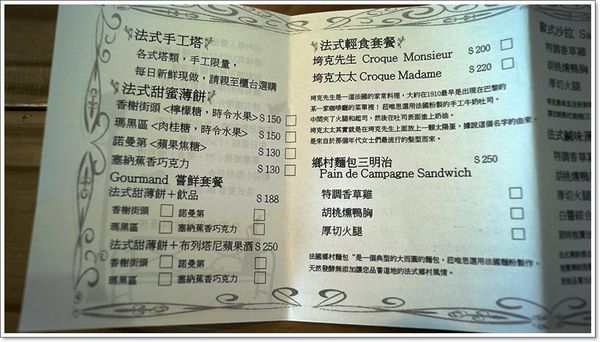 法式手工塔
各式塔類,手工限量,
每日新鮮現做,請親至櫃台選購
法式甜蜜薄餅
香榭街頭<檸檬糖,時令水果> $150
瑪黑區<肉桂糖,時令水果> $150
諾曼第<蘋果焦糖> $130
塞納蕉香巧克力 $130
Gourmand 嘗鮮套餐
法式甜薄餅+飲品 $188
香榭街頭 諾曼第
瑪黑區 塞納蕉香巧克力
法式甜薄餅+布列塔尼蘋果酒 $250
香榭街頭 諾曼第
瑪黑區 塞納蕉香巧克力
法式輕食套餐
埼克先生 Croque Monsieur $200
埼克太太 Croque Madame $220
埼克先生是一道法國的家常料理,大約在1910最早是出現在巴黎的
某一家咖啡廳的菜單裡!莅唯思選用法國麵粉的手工牛奶吐司,
中間夾了火腿和起司,然後在吐司表面塗上奶油。
埼克太太其實就是在埼克先生上面放上一顆太陽蛋,據說這個名字的由來,
是來自於那個年代女士們最流行的髮型而來。
鄉村麵包三明治 $250
Pain de Campagne Sandwich
特調香草雞
胡桃燻鴨胸
厚切火腿
法國鄉村麵包"是一個典型的大而圓的麵包,莅唯思選用法國麵粉製作。
天然發酵無添加讓您品嘗道地的法式鄉村風情。
歐式沙拉 Sa
特調香草雞
胡桃燻鴨胸
厚切火腿
法式鹹味薄